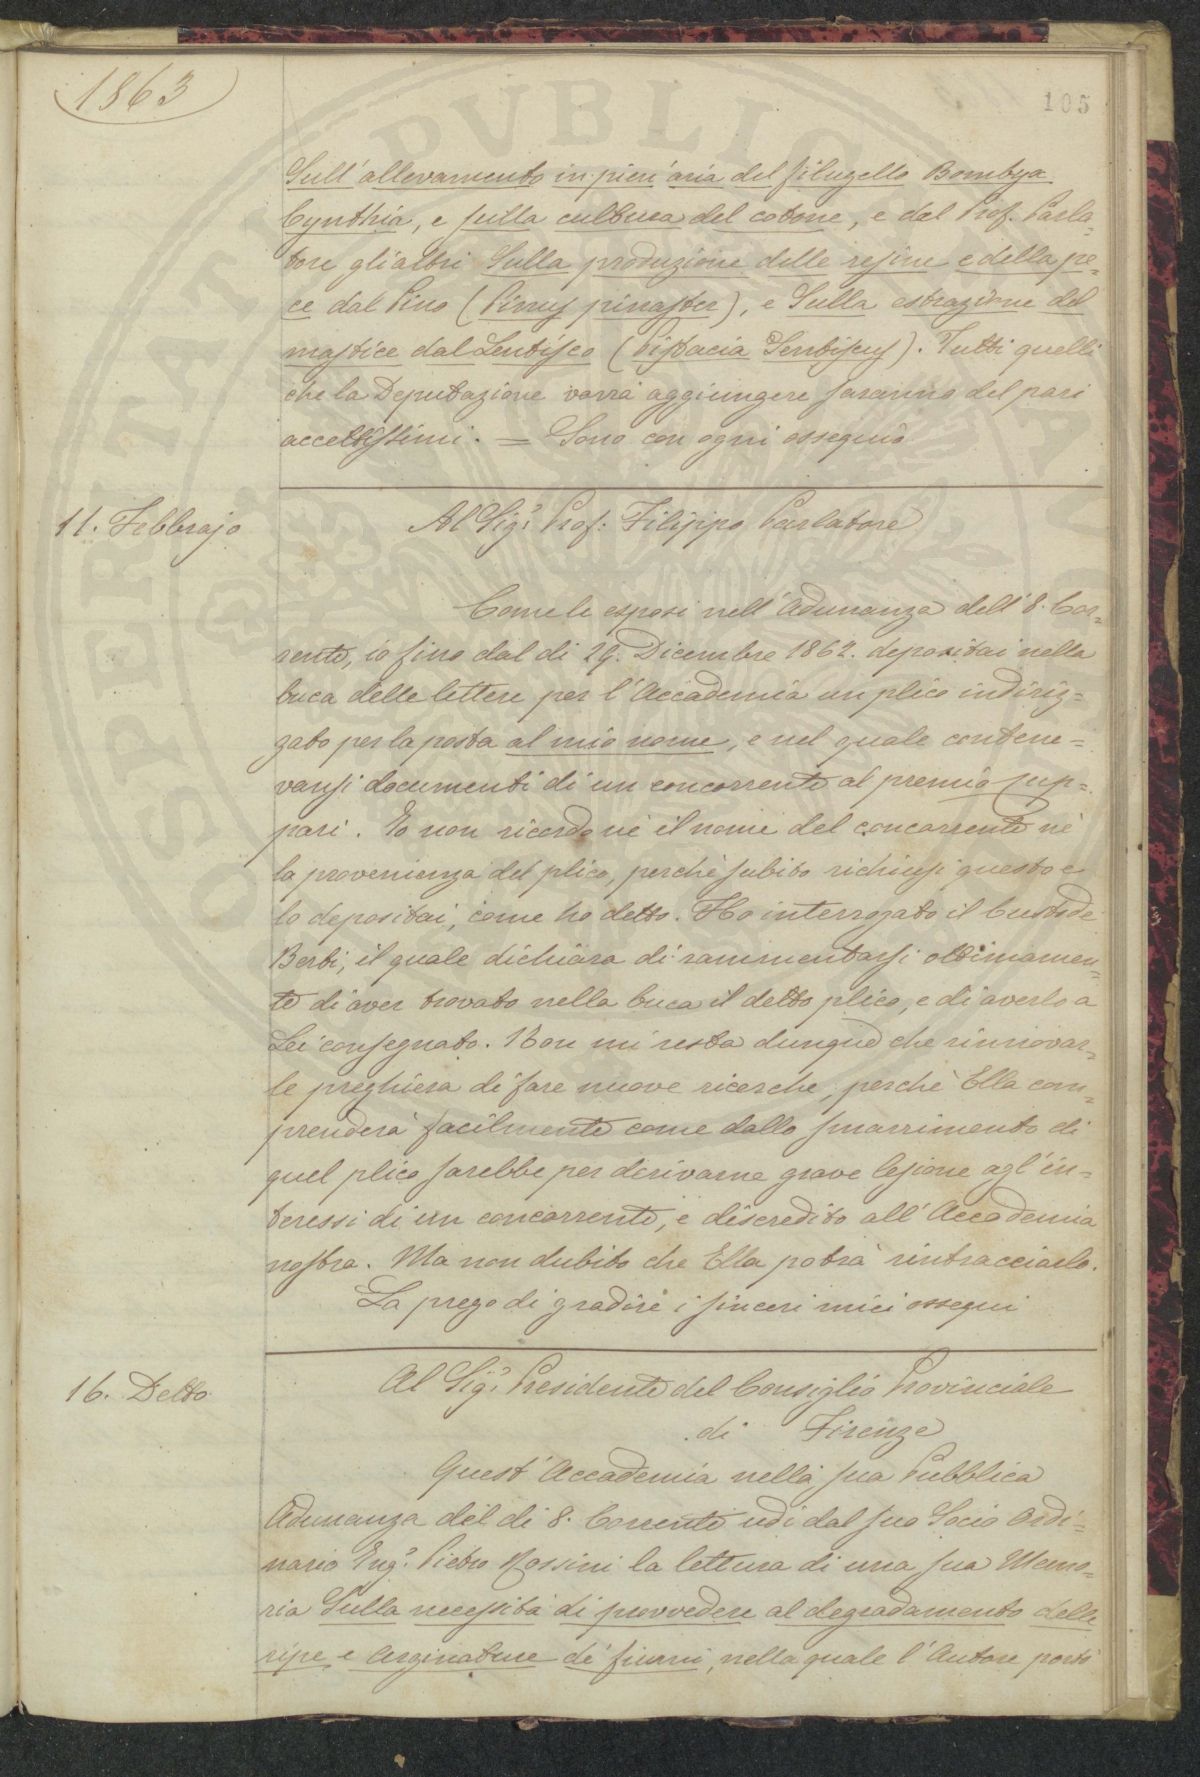 1863
105
Sull'allevamento in pien'aria del filugello Bombyx
Cynthia, e sulla cultura del cotone, e dal Prof. Parla-
tore gli altri Sulla produzione delle resine e della pe-
ce dal Pino (Pinus pinaster), e Sulla estrazione del
mastice dal Lentisco (Pistacia Lentiscus). Tutti quelli
che la Deputazione vorrà aggiungere saranno del pari
accettissimi. = Sono con ogni ossequio
11. Febbrajo
Al Sig.r Prof: Filippo Parlatore
Come le esposi nell'Adunanza dell'8. Cor-
rente, io fino dal dì 29. Dicembre 1862. depositai nella
buca delle lettere per l'Accademia un plico indiriz-
zato per la posta al mio nome, e nel quale contene-
vansi documenti di un concorrente al premio Cup-
pari. Io non ricordo nè il nome del concorrente nè
la provenienza del plico, perchè subito richiusi questo e
lo depositai, come ho detto. Ho interrogato il Custode
Berti, il quale dichiara di rammentarsi ottimamen-
te di aver trovato nella buca il detto plico, e di averlo a
Lei consegnato. Non mi resta dunque che rinnovar-
le preghiera di fare nuove ricerche, perchè Ella com-
prenderà facilmente come dallo smarrimento di
quel plico sarebbe per derivarne grave lesione agl'in-
teressi di un concorrente, e discredito all'Accademia
nostra. Ma non dubito che Ella potrà rintracciarlo.
La prego di gradire i sinceri miei ossequi
16. Detto
Al Sig.r Presidente del Consiglio Provinciale
di Firenze
Quest'Accademia nella sua Pubblica
Adunanza del dì 8. Corrente udì dal suo Socio Ordi-
nario Ing.r Pietro Rossini la lettura di una sua Memo-
ria Sulla necessità di provvedere al degradamento delle
ripe e Arginature de' fiumi, nella quale l'Autore portò
OSPERITATI PVBLICAE